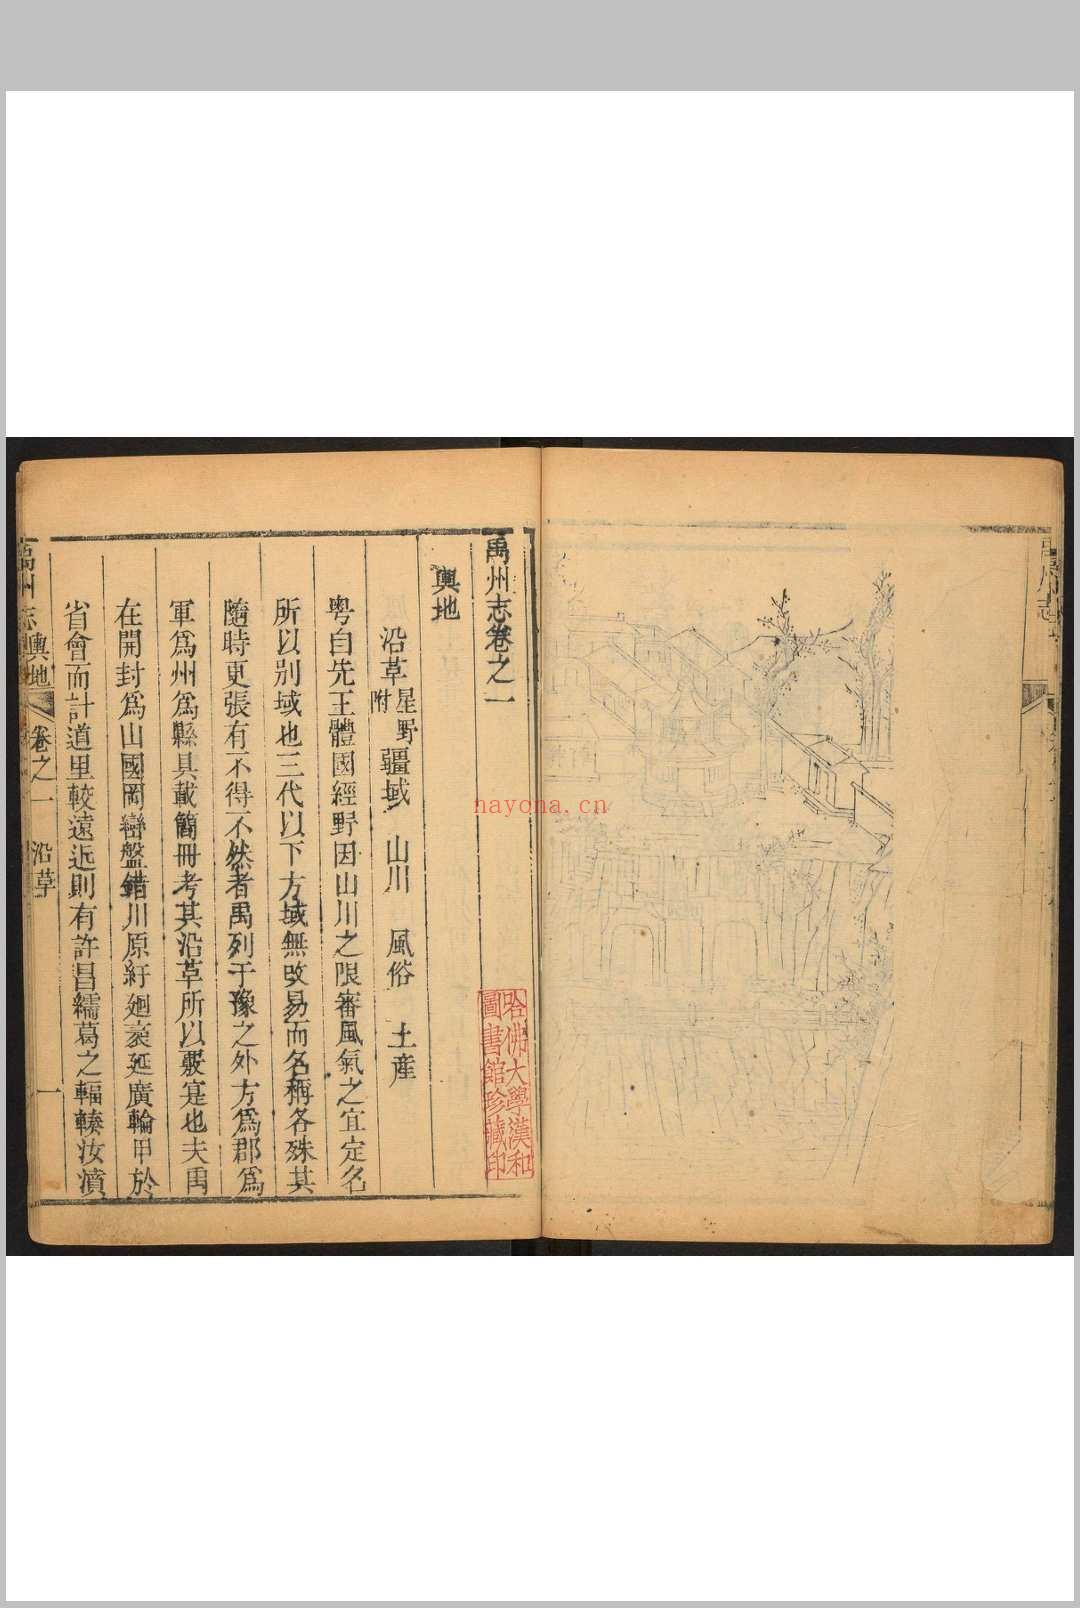 禹州志卷之一
輿地
沿革星野附 疆域 山川 風俗 土産
粤自先王體國經野因山川之限審風氣之宜定名
所以别域也三代以下方域無改易而名稱各殊其
隨時更張有不得不然者禹列于豫之外方爲郡爲
軍爲州爲縣具載簡冊考其沿革所以覈寔也夫禹
在開封爲山國岡巒盤錯川原紆廻袤延廣輪甲於
省會而計道里較遠近則有許昌繻葛之輻輳汝濆
禹州志 輿地 卷之一 沿革 一
哈佛大學漢和
圖書館珍藏印
nayona.cn